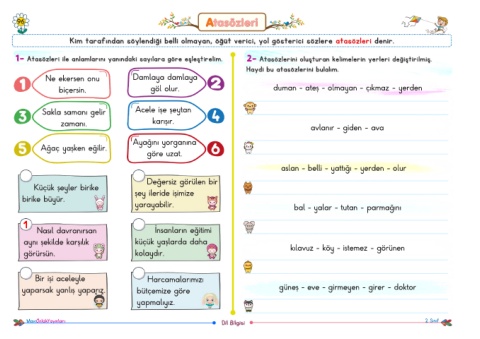 Atasözleri
Kim tarafından söylendiği belli olmayan, öğüt verici, yol gösterici sözlere atasözleri denir.
1- Atasözleri ile anlamlarını yanındaki sayılara göre eşleştirelim.
1
Ne ekersen onu
biçersin.
Damlaya damlaya
göl olur.
2
3
Sakla samanı gelir
zamanı.
Acele işe şeytan
karışır.
4
5
Ağaç yaşken eğilir.
Ayağını yorganına
göre uzat.
6
Küçük şeyler birike
birike büyür.
Değersiz görülen bir
şey ileride işimize
yarayabilir.
1
Nasıl davranırsan
aynı şekilde karşılık
görürsün.
İnsanların eğitimi
küçük yaşlarda daha
kolaydır.
Bir işi aceleyle
yaparsak yanlış yaparız.
Harcamalarımızı
bütçemize göre
yapmalıyız.
2- Atasözlerini oluşturan kelimelerin yerleri değiştirilmiş.
Haydi bu atasözlerini bulalım.
duman - ateş - olmayan - çıkmaz - yerden
avlanır - giden - ava
aslan - belli - yattığı - yerden - olur
bal - yalar - tutan - parmağını
kılavuz - köy - istemez - görünen
güneş - eve - girmeyen - girer - doktor
Dil Bilgisi